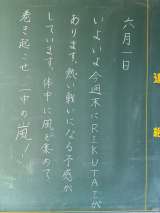 六月一日
いよいよ今週末にRIKUTATが
あります。熱い戦いになる予感が
しています。体中に風を集めて
巻き起こせ一中の嵐!